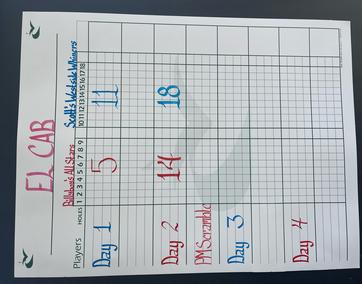 EL CAB
Billabob's All Stars Scott's Westside Whiners
HOLES 1 2 3 4 5 6 7 8 9 10 11 12 13 14 15 16 17 18
Players
Day 1 5 11
Day 2 14 18
PM Scramble
Day 3
Day 4